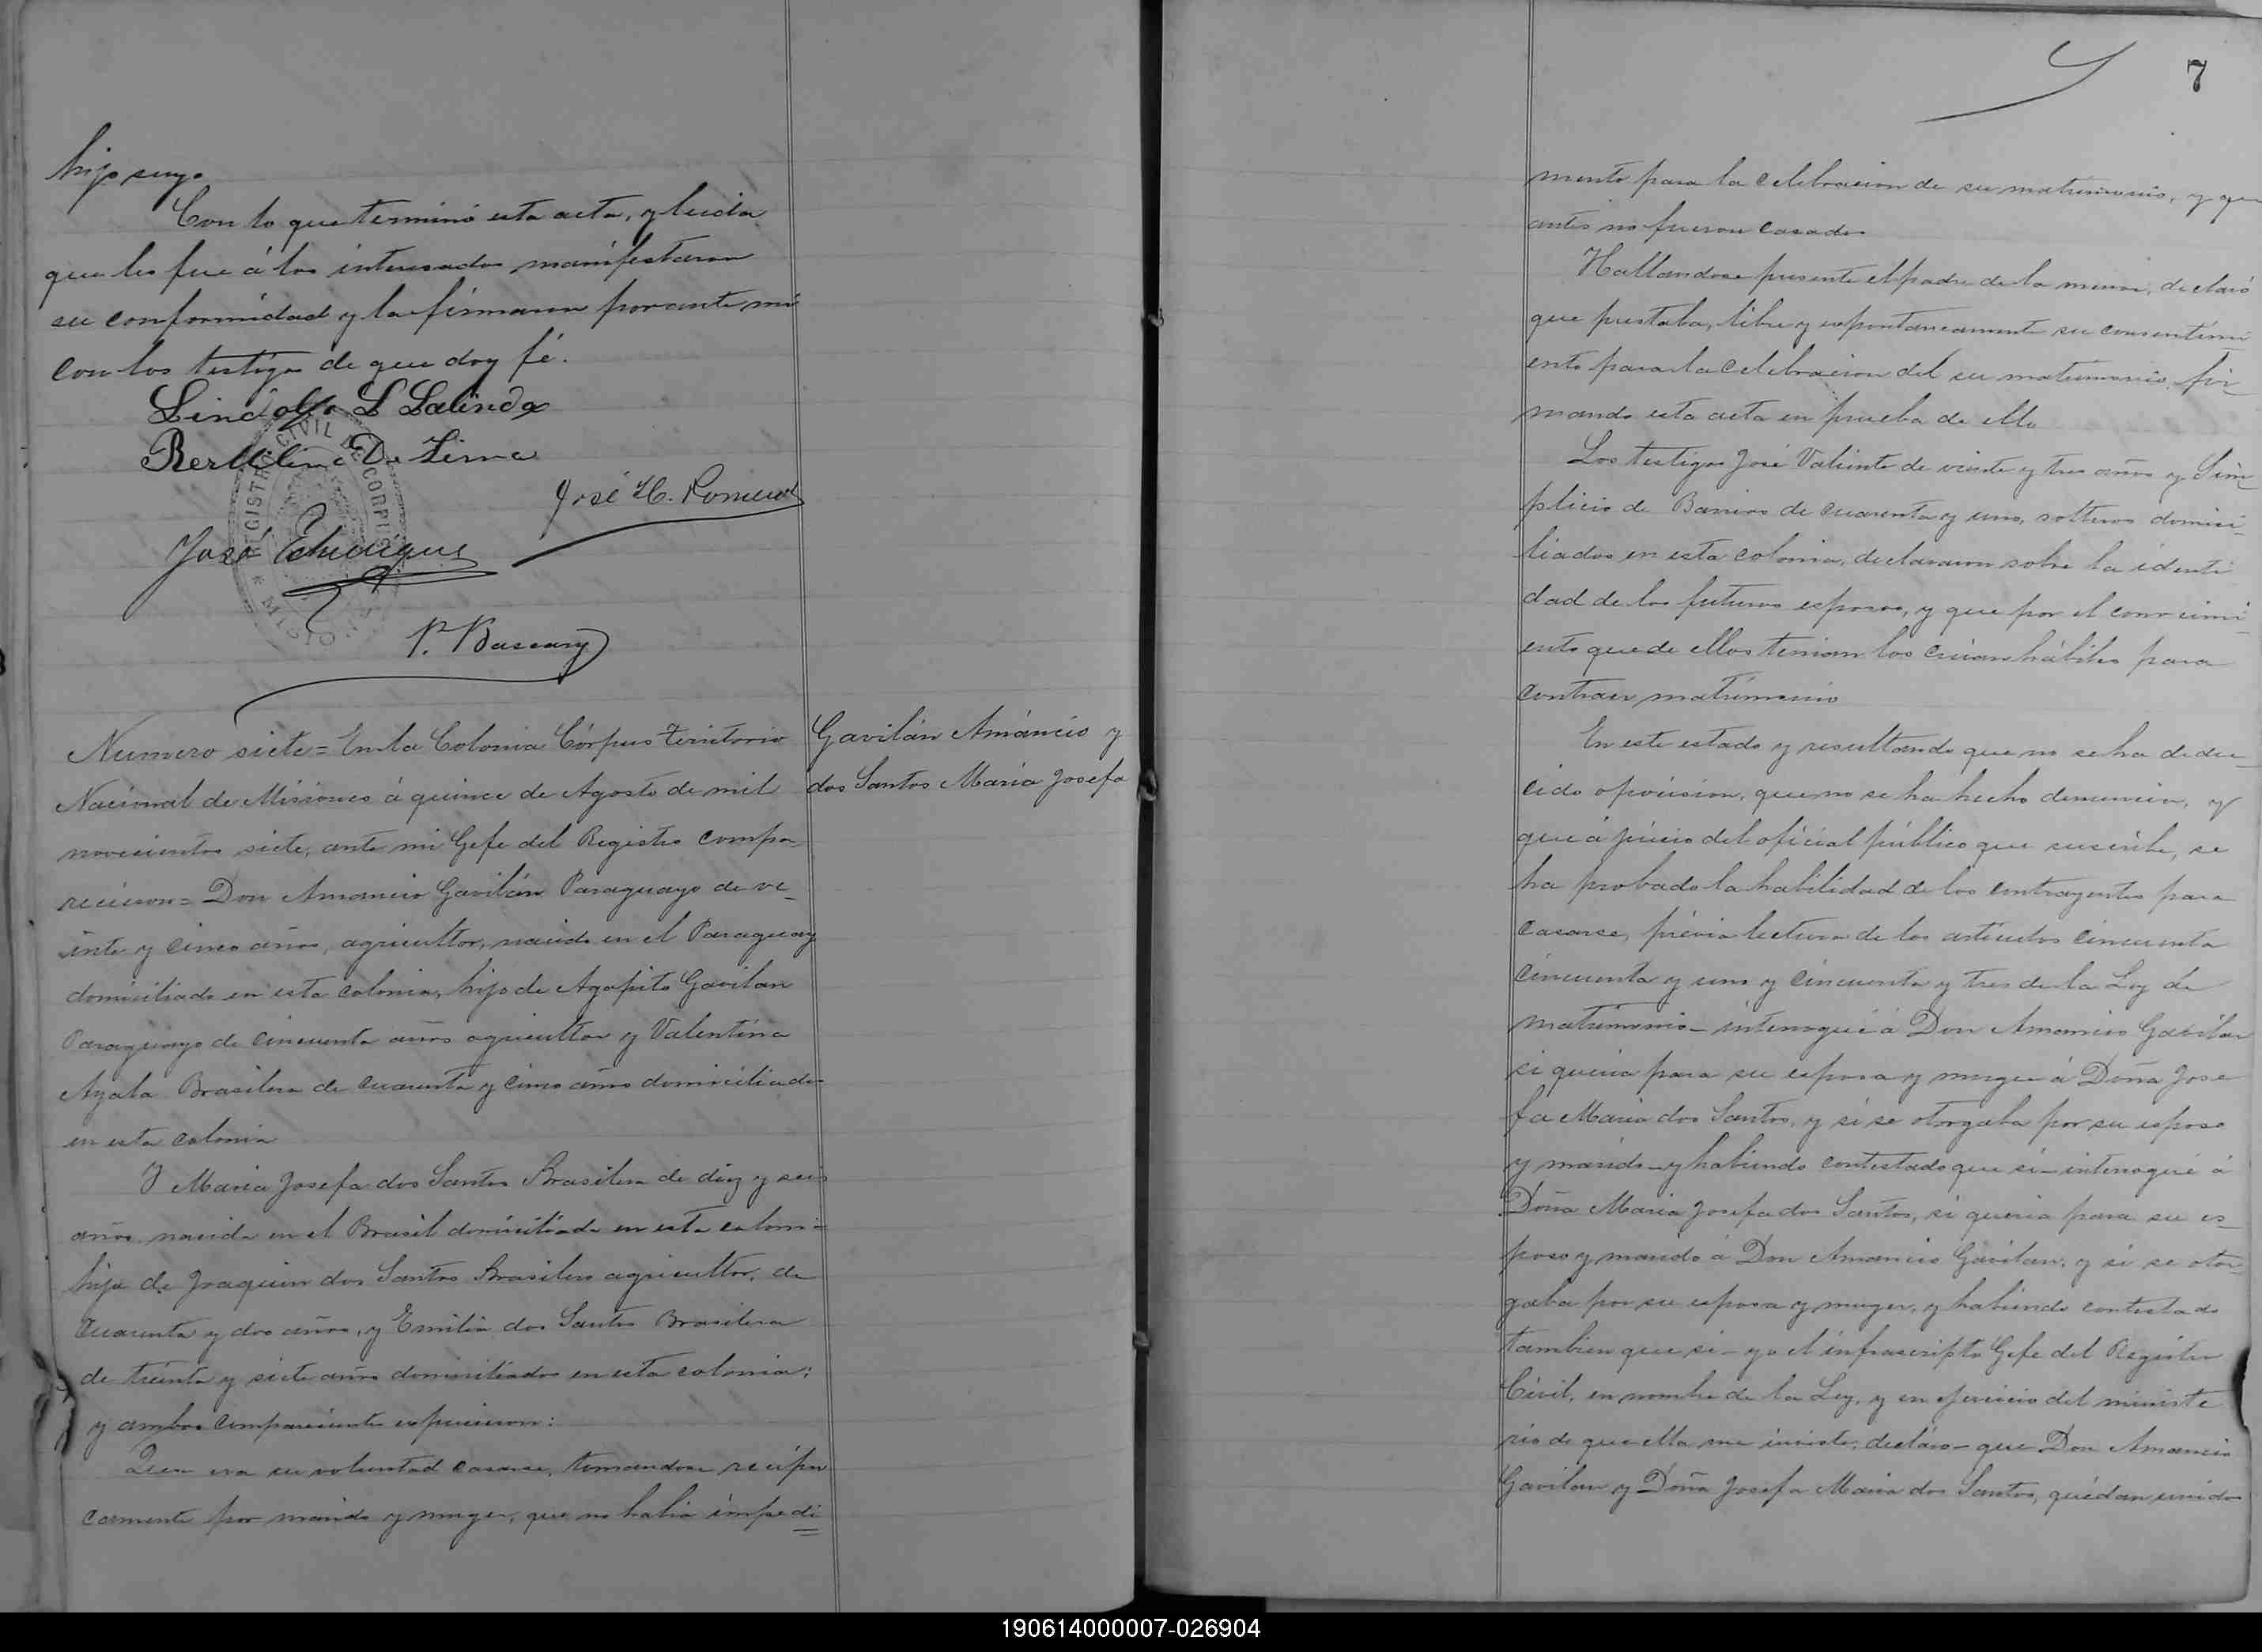 hijo suyo
Con lo que terminó esta acta, y leida
que les fue á los interesados manifestaron
su conformidad y la firmaron por ante mi
con los testigos de que doy fé.
Lindolfo L
De Lima
José H. Romero
José
P. Bascary
REGISTRO CIVIL DE CORPUS
MISIONES
Numero siete = En la Colonia Córpus territorio
Nacional de Misiones á quince de Agosto de mil
novecientos siete, ante mi Gefe del Registro compa-
recieron = Don Amancio Gavilán Paraguayo de ve-
inte y cinco años, agricultor, nacido en el Paraguay
domiciliado en esta colonia, hijo de Agapito Gavilan
Paraguayo de cincuenta años agricultor y Valentina
Ayala Brasilera de cuarenta y cinco años domiciliados
en esta colonia
Y Maria Josefa dos Santos Brasilera de diez y seis
años nacida en el Brasil domiciliada en esta coloni-
hija de Joaquin dos Santos Brasilero agricultor, de
cuarenta y dos años, y Emilia dos Santos Brasilera
de treinta y siete años domiciliados en esta colonia;
y ambos comparecientes espusieron:
Que era su voluntad casarse, tomandose recipro
camente por marido y muger, que no habia impedi
Gavilán Amáncio y
dos Santos María Josefa
7
mento para la celebracion de su matrimonio, y que
antes no fueron casados
Hallandose presente el padre de la menor, declaró
que prestaba, libre y espontaneamente su consentimi-
ento para la celebracion del su matrimonio, fir-
mando esta acta en prueba de ello
Los testigos José Valiente de veinte y tres años y Sim-
plicio de Barros de cuarenta y uno, solteros domici-
liados en esta colonia, declararon sobre la identi
dad de los futuros esposos, y que por el conocimi-
ento que de ellos tenian los creian hábiles para
contraer matrimonio
En este estado y resultando que no se ha dedu-
cido oposicion, que no se ha hecho denuncia, y
que á juicio del oficial público que suscribe, se
ha probado la habilidad de los contrayentes para
casarse, prévia lectura de los articulos cincuenta
cincuenta y uno y cincuenta y tres de la Ley de
matrimonio - interrogué á Don Amancio Gavilan
si queria para su esposa y muger á Doña Jose
fa Maria dos Santos, y si se otorgaba por su esposo
y marido - y habiendo contestado que si - interrogué á
Doña Maria Josefa dos Santos, si queria para su es-
poso y marido á Don Amancio Gavilan, y si se otor-
gaba por su esposa y muger, y habiendo contestado
tambien que si - yo el infrascripto Gefe del Registro
Civil, en nombre de la Ley, y en ejercicio del ministe
rio de que ella me inviste, declaro - que Don Amancio
Gavilan y Doña Josefa Maria dos Santos, quedan unidos
190614000007-026904